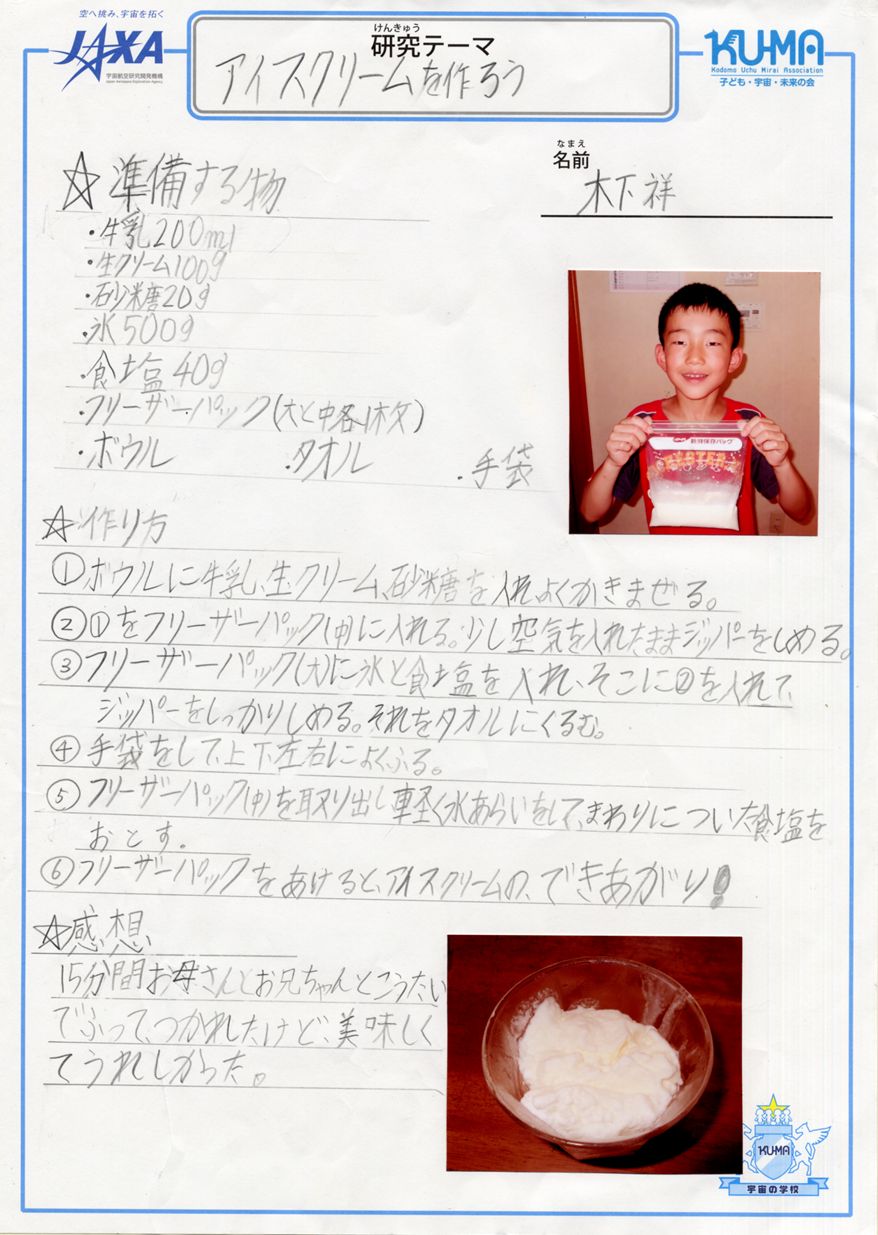 空へ挑み、宇宙を拓く
JAXA
宇宙航空研究開発機構
Japan Aerospace Exploration Agency
けんきゅう
研究テーマ
アイスクリームを作ろう
KU-MA
Kodomo Uchu Mirai Association
子ども・宇宙・未来の会
なまえ
名前
木下祥
☆準備する物
・牛乳200ml
・生クリーム100g
・砂糖20g
・氷500g
・食塩40g
・フリーザーパック(大と中各1枚)
・ボウル ・タオル ・手袋
☆作り方
①ボウルに牛乳、生クリーム、砂糖を入れよくかきまぜる。
②①をフリーザーパック(中)に入れる。少し空気を入れたままジッパーをしめる。
③フリーザーパック(大)に氷と食塩を入れ、そこに②を入れて、
ジッパーをしっかりしめる。それをタオルにくるむ。
④手袋をして、上下左右によくふる。
⑤フリーザーパック(中)を取り出し軽く水あらいをして、まわりについた食塩を
おとす。
⑥フリーザーパックをあけると、アイスクリームの、できあがり!
☆感想
15分間お母さんとお兄ちゃんとこうたい
でふって、つかれたけど、美味しく
てうれしかった。
KU-MA
宇宙の学校